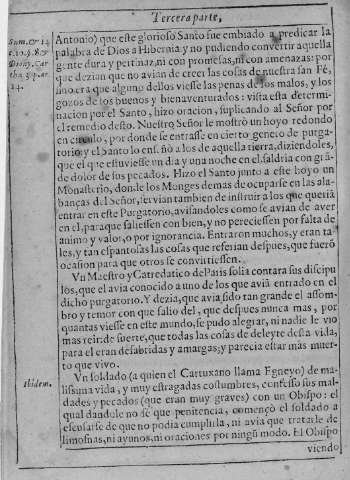 Tercera parte,
Antonio) que este glorioso Santo fue embiado a predicar la
palabra de Dios a Hibernia y no pudiendo convertir aquella
gente dura y pertinaz, ni con promesas, ni con amenazas: por
que dezian que no avian de creer las cosas de nuestra san Fé,
sino era que alguno dellos viesse las penas de los malos, y los
gozos de los buenos y bienaventurados: vista esta determi-
nacion por el Santo, hizo oracion, suplicando al Señor por
el remedio desto. Nuestro Señor le mostrò un hoyo redondo
en circulo, por donde se entrasse en cierto genero de purga-
torio: y el Santo lo enseñò a los de aquella tierra, diziendoles,
que el que estuviesse un dia y una noche en el, saldria con grã-
de dolor de sus pecados. Hizo el Santo junto a este hoyo un
Monasterio, donde los Monges demas de ocuparse en las ala-
banças del Señor, servian tambien de instruir a los que queriã
entrar en este Purgatorio, avisandoles como se avian de aver
en el, para que saliessen con bien, y no pereciessen por falta de
animo y valor, o por ignorancia. Entraron muchos, y eran ta-
les, y tan espantosas las cosas que referian despues, que fuerõ
ocasion para que otros se convirtiessen.
Vn Maestro y Catredatico de Paris solia contar a sus discipu
los, que el avia conocido a uno de los que aviã entrado en el
dicho purgatorio. Y dezia, que avia sido tan grande el assom-
bro y temor con que salio del, que despues nunca mas, por
quantas viesse en este mundo, se pudo alegrar, ni nadie le vio
mas reir: de suerte, que todas las cosas de deleyte desta vida,
para el eran desabridas y amargas; y parecia estar mas muer-
to que vivo.
Vn soldado (a quien el Cartuxano llama Egneyo) de ma-
lissima vida, y muy estragadas costumbres, confesso sus mal-
dades y pecados (que eran muy graves) con un Obispo: el
qual dandole no sé que penitencia, començò el soldado a
escusarse de que no podia cumplirla, ni avia que tratarle de
limosnas, ni ayunos, ni oraciones por ningũ modo. El Obispo
viendo
Dony. Car
24.
Ibidem.